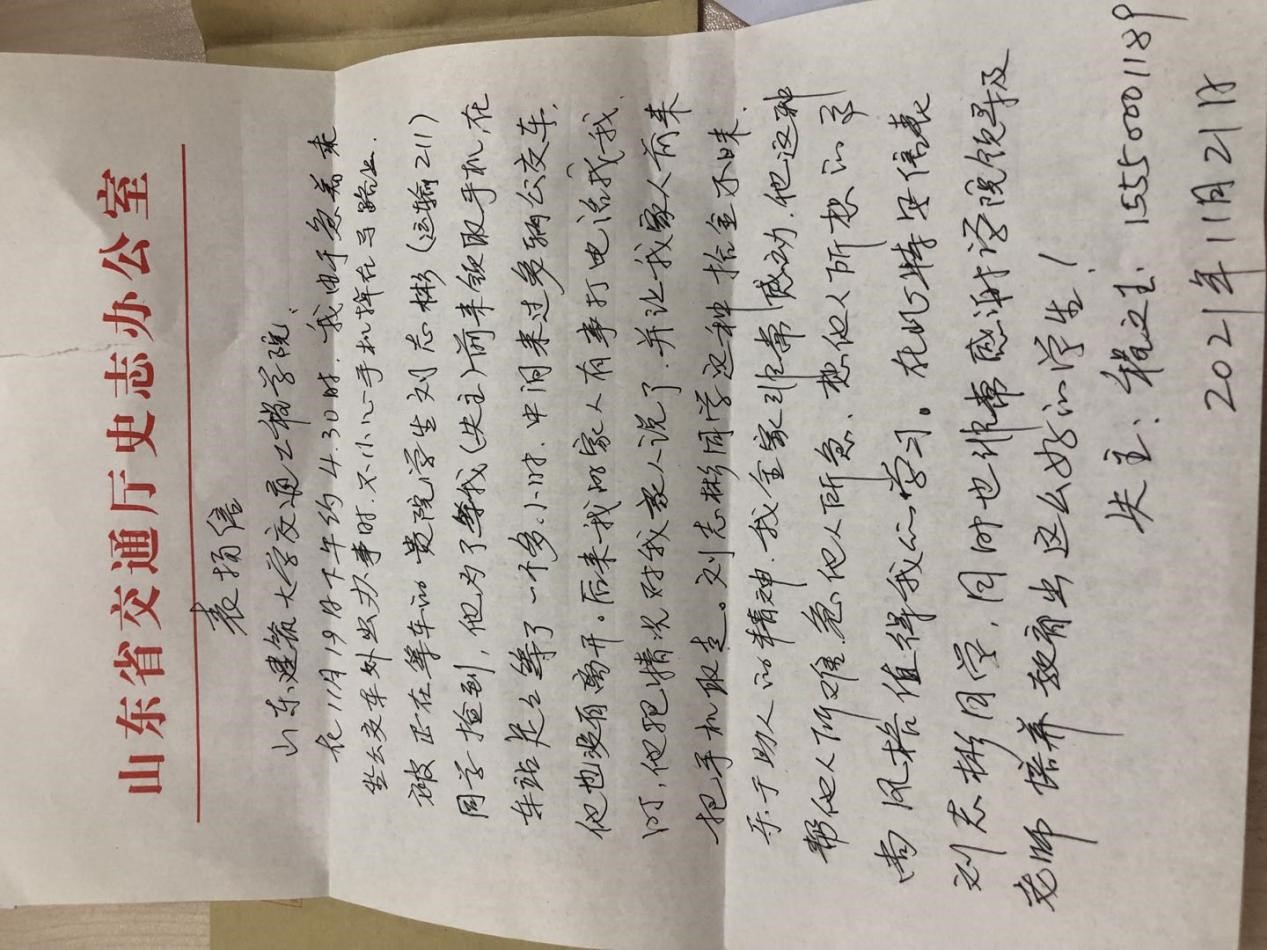 山东省交通厅史志办公室
表扬信
山东建筑大学交通工程学院、
在11月19日下午约4.30时.我由于急着来
坐公交车外出办事时.不小心手机掉在马路上.
被正在等车的贵院学生刘志彬(运输211)
同学捡到,他为了等我(失主)前来领取手机在
车站足足等了一个多小时.中间来过多辆公交车.
他也没有离开。后来我的家人有事打电话找我
时,他把情况对我家人说了.并让我家人前来
把手机取走。刘志彬同学这种拾金不昧.
乐于助人的精神.我全家非常感动.他这种
帮他人所难.急他人所急、想他人所想的
尚风格值得我们学习。在此特写信表
刘志彬同学,同时也非常感谢学院领导及
老师培养教育出这么好的学生!
失主: 15550001189
2021年11月21日